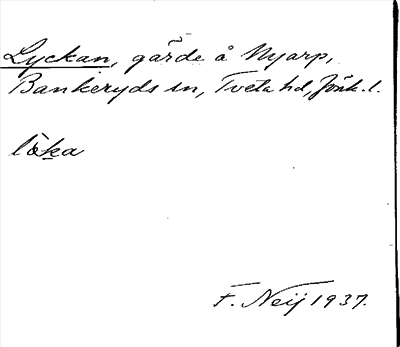 Lyckan, gärde å Nyarp,
Bankeryds sn, Tveta hd, Jönk. l.
lök̲a
F. Neij 1937.